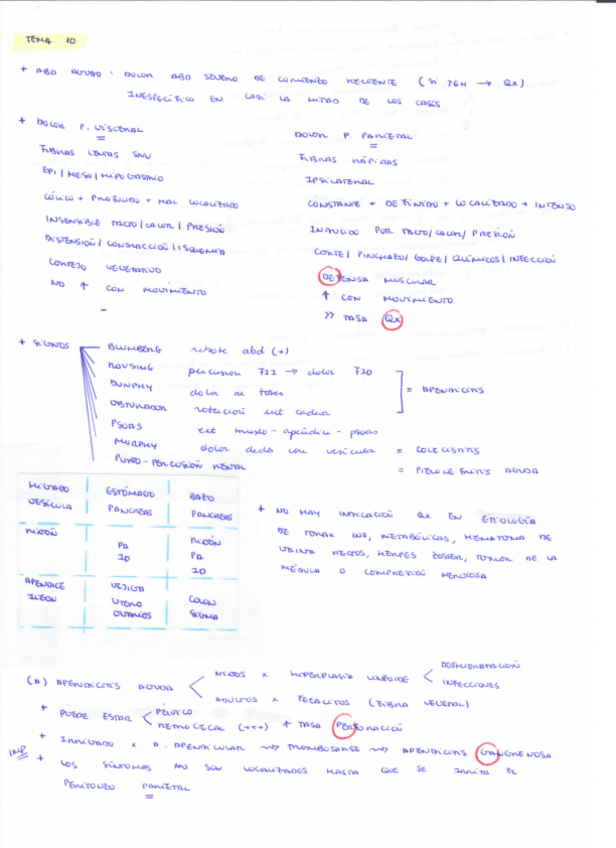 TEMA 10
+ ABD AGUDO: DOLOR ABD SEVERO DE COMIENZO RECIENTE (SI >6H → QX)
INESPECÍFICO EN CASI LA MITAD DE LOS CASOS
+ DOLOR P. VISCERAL
FIBRAS LENTAS SNV
EPI/MESO/HIPOGASTRIO
CÓLICO + PROFUNDO + MAL LOCALIZADO
INSENSIBLE TACTO/CALOR/PRESIÓN
DISTENSIÓN/CONTRACCIÓN/ISQUEMIA
CORTEJO VEGETATIVO
NO ↑ CON MOVIMIENTO
DOLOR P. PARIETAL
FIBRAS RÁPIDAS
IPSILATERAL
CONSTANTE + DEFINIDO + LOCALIZADO + INTENSO
INDUCIDO POR TACTO/CALOR/PRESIÓN
CORTE/PINCHAZO/GOLPE/QUÍMICOS/INFECCIÓN
DEFENSA MUSCULAR
↑ CON MOVIMIENTO
>> TASA QX
+ SIGNOS
BLUMBERG rebote abd (+)
ROVSING percusión FII → dolor FID
DUNPHY dolor al toser
OBTURADOR rotación int cadera
PSOAS ext muslo - apéndice - psoas
= APENDICITIS
MURPHY dolor dedo con vesícula = COLECISTITIS
PUÑO-PERCUSIÓN RENAL = PIELONEFRITIS AGUDA
HÍGADO VESÍCULA
ESTÓMAGO PÁNCREAS
BAZO PÁNCREAS
RIÑÓN
PA ID
RIÑÓN PA ID
APÉNDICE ILEON
VEJIGA ÚTERO OVARIOS
COLON SIGMA
+ NO HAY INDICACIÓN QX EN ETIOLOGÍA
DE TORAX INF, METABÓLICAS, HEMATOMA DE
VAINA RECTOS, HERPES ZOSTER, TUMOR DE LA
MÉDULA O COMPRESIÓN NERVIOSA
(A) APENDICITIS AGUDA
NIÑOS X HIPERPLASIA LINFOIDE
DESHIDRATACIÓN
INFECCIONES
ADULTOS X FECALITOS (FIBRA VEGETAL)
+ PUEDE ESTAR
PÉLVICO
RETROCECAL (+++) ↑ TASA PERFORACIÓN
+ IRRIGADO X A. APENDICULAR ⟿ TROMBOSARSE ⟿ APENDICITIS GANGRENOSA
IMP + LOS SÍNTOMAS NO SON LOCALIZADOS HASTA QUE SE IRRITA EL
PERITONEO PARIETAL